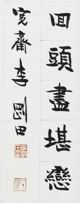 回頭盡堪戀
寬齋李剛田